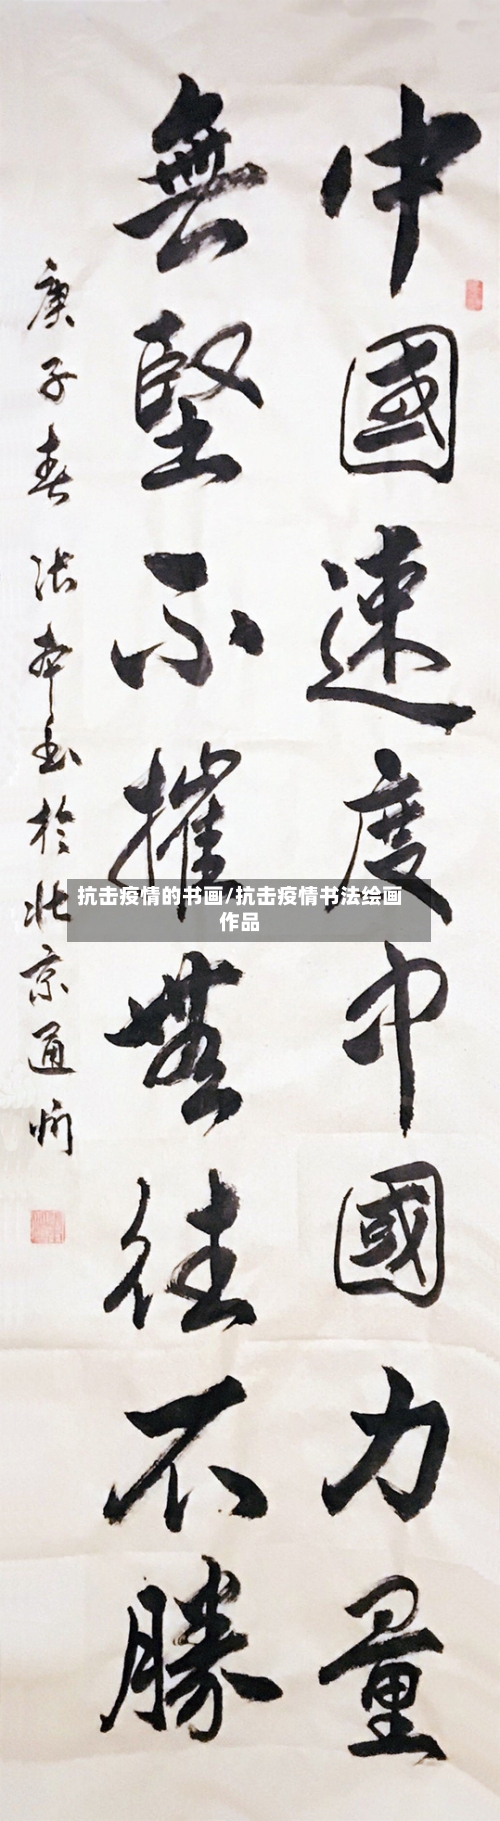 中國速度中國力量
無堅不摧無往不勝
庚子春張本玉於北京通州
抗击疫情的书画/抗击疫情书法绘画
作品